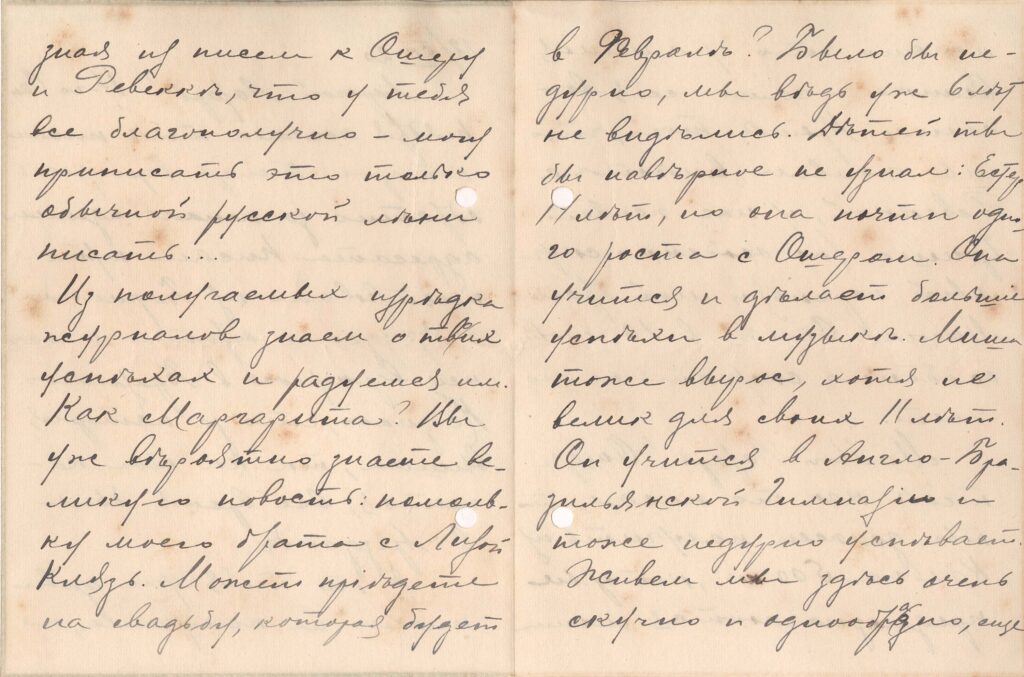 зная из писем к Ошеру
и Ревеккѣ, что у тебя
все благополучно – могу
приписать это только
обычной русской лѣни
писать...
Из получаемых изрѣдка
журналов знаем о твоих
успѣхах и радуемся им.
Как Маргарита? Вы
уже вѣроятно знаете ве-
ликую новость: помолв-
ку моего брата с Лизой
Князь. Может пріѣдете
на свадьбу, которая будет
в Февралѣ? Было бы не-
дурно, мы вѣдь уже 6 лѣт
не видѣлись. Дѣтей ты
бы навѣрное не узнал: Естер
11 лѣт, но она почти одно-
го роста с Ошером. Она
учится и дѣлает большіе
успѣхи в музыкѣ. Миша
тоже вырос, хотя не
велик для своих 11 лѣт.
Он учится в Англо-Бра-
зильянской Гимназіи и
тоже недурно успѣвает.
Живем мы здѣсь очень
скучно и однообразно, еще